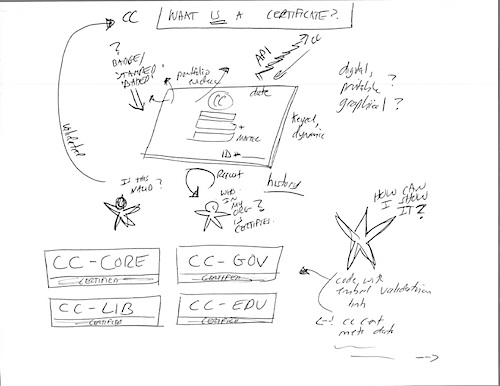 CC
WHAT IS A CERTIFICATE?
?
BADGE/
STAMPED
'DATED'
portfolio
evidence
API
CC
digital,
printable ?
graphical ?
CC
date
+
NAME
ID #
Keyed,
dynamic
validated
IS THIS
VALID?
Report
history
WHO
IN
MY
ORG ?
IS
CERTIFIED.
HOW CAN
I SHOW
IT?
CC-CORE
CERTIFIED
CC-GOV
CERTIFIED
CC-LIB
CERTIFIED
CC-EDU
CERTIFIED
code with
embed validation
link
<--! CC cert
meta data
-->